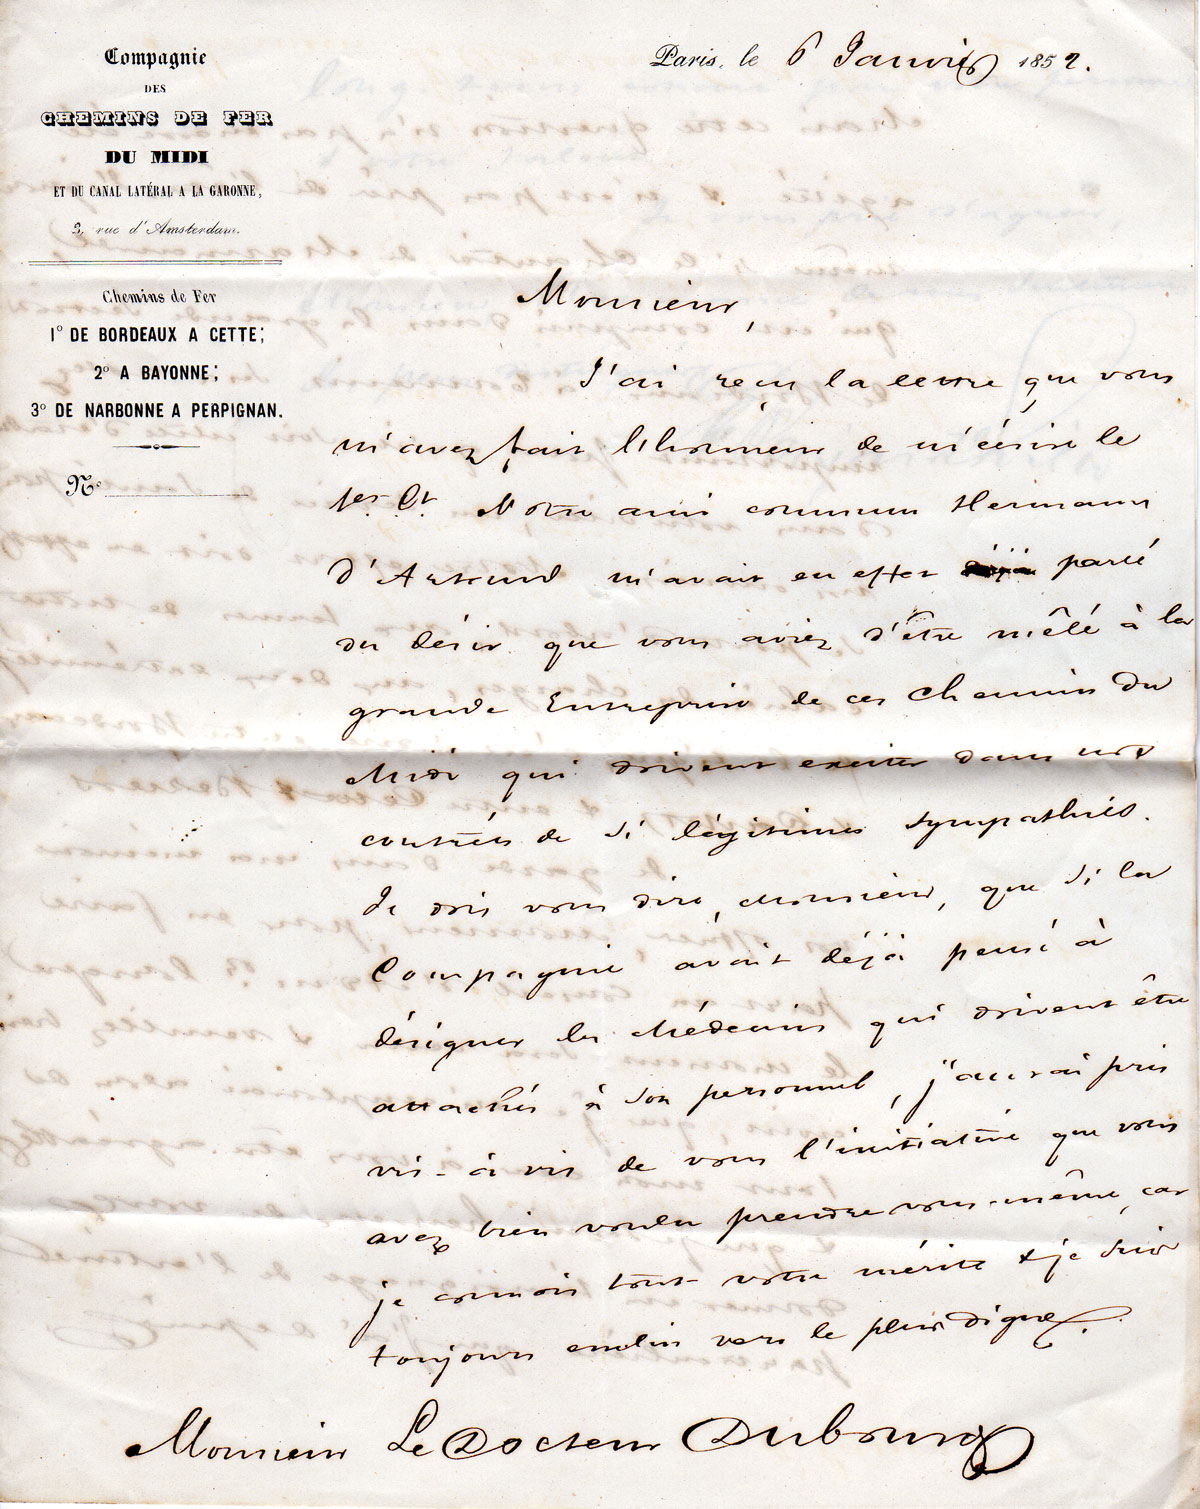 Compagnie
DES
CHEMINS DE FER
DU MIDI
ET DU CANAL LATÉRAL A LA GARONNE,
3, rue d'Amsterdam.
Chemins de Fer
1º DE BORDEAUX A CETTE;
2º A BAYONNE;
3º DE NARBONNE A PERPIGNAN.
Nº
Paris, le 6 Janvier 1852.
Monsieur,
J'ai reçu la lettre que vous
m'avez fait l'honneur de m'écrire le
1er Ct. Notre ami commun Hermann
d'Artaud m'avait en effet déjà parlé
du désir que vous aviez d'être mêlé à la
grande Entreprise de ces Chemins du
Midi qui doivent exciter dans nos
contrées de si légitimes sympathies.
Je dois vous dire, Monsieur, que si la
Compagnie avait déjà pensé à
désigner les Médecins qui doivent être
attachés à son personnel, j'aurai pris
vis-à-vis de vous l'initiative que vous
avez bien voulu prendre vous-même, car
je connois tout votre mérite & je suis
toujours enclin vers le plus digne.
Monsieur Le Docteur Dubourg